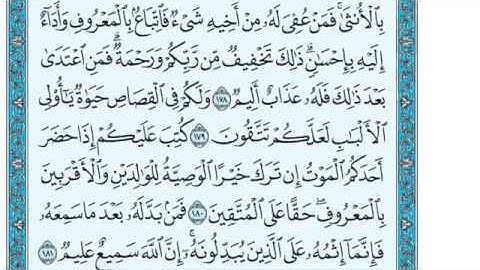 بِالْأُنثَىٰ ۚ فَمَنْ عُفِىَ لَهُۥ مِنْ أَخِيهِ شَىْءٌ فَاتِّبَاعٌۢ بِالْمَعْرُوفِ وَأَدَآءٌ
إِلَيْهِ بِإِحْسَٰنٍ ۗ ذَٰلِكَ تَخْفِيفٌ مِّن رَّبِّكُمْ وَرَحْمَةٌ ۗ فَمَنِ اعْتَدَىٰ
بَعْدَ ذَٰلِكَ فَلَهُۥ عَذَابٌ أَلِيمٌ ١٧٨ وَلَكُمْ فِى الْقِصَاصِ حَيَوٰةٌ يَٰٓأُو۟لِى
الْأَلْبَٰبِ لَعَلَّكُمْ تَتَّقُونَ ١٧٩ كُتِبَ عَلَيْكُمْ إِذَا حَضَرَ
أَحَدَكُمُ الْمَوْتُ إِن تَرَكَ خَيْرًا الْوَصِيَّةُ لِلْوَٰلِدَيْنِ وَالْأَقْرَبِينَ
بِالْمَعْرُوفِ ۖ حَقًّا عَلَى الْمُتَّقِينَ ١٨٠ فَمَنۢ بَدَّلَهُۥ بَعْدَ مَا سَمِعَهُۥ
فَإِنَّمَآ إِثْمُهُۥ عَلَى الَّذِينَ يُبَدِّلُونَهُۥٓ ۚ إِنَّ اللَّهَ سَمِيعٌ عَلِيمٌ ١٨١